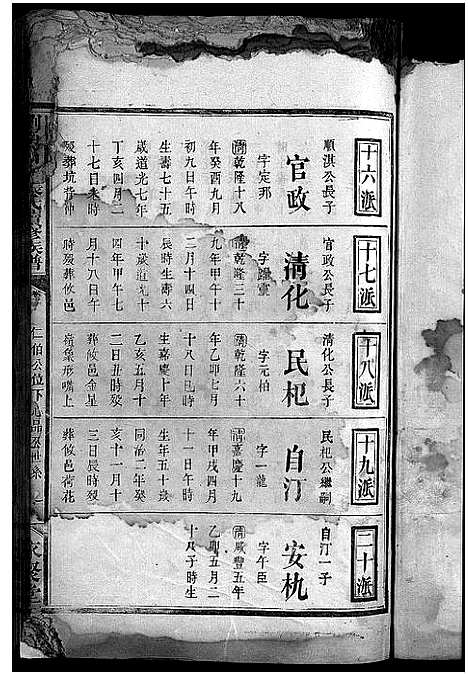 十六派
順淇公長子
官政
字定邦
清乾隆十八
年癸酉九月
初九日午時
生壽七十五
歲道光七年
丁亥四月二
十七日未時
歿葬坑背仰
十七派
官政公長子
清化
清乾隆三十
九年甲午十
二月十四日
辰時生壽六
十歲道光十
四年甲午七
月十八日午
時歿葬攸邑
十八派
清化公長子
民杞
字元柏
清乾隆六十
年乙卯七月
十八日巳時
生嘉慶十年
乙亥五月十
二日丑時歿
葬攸邑金星
象形嘴上
十九派
民杞公繼嗣
自汀
字一龍
清嘉慶十九
年甲戌四月
十一日午時
生年五十歲
同治二年癸
亥十一月十
三日辰時歿
葬攸邑荷花
二十派
自汀一子
安杭
字午臣
清咸豐五年
乙卯五月二
十八子時生
仁伯公位下